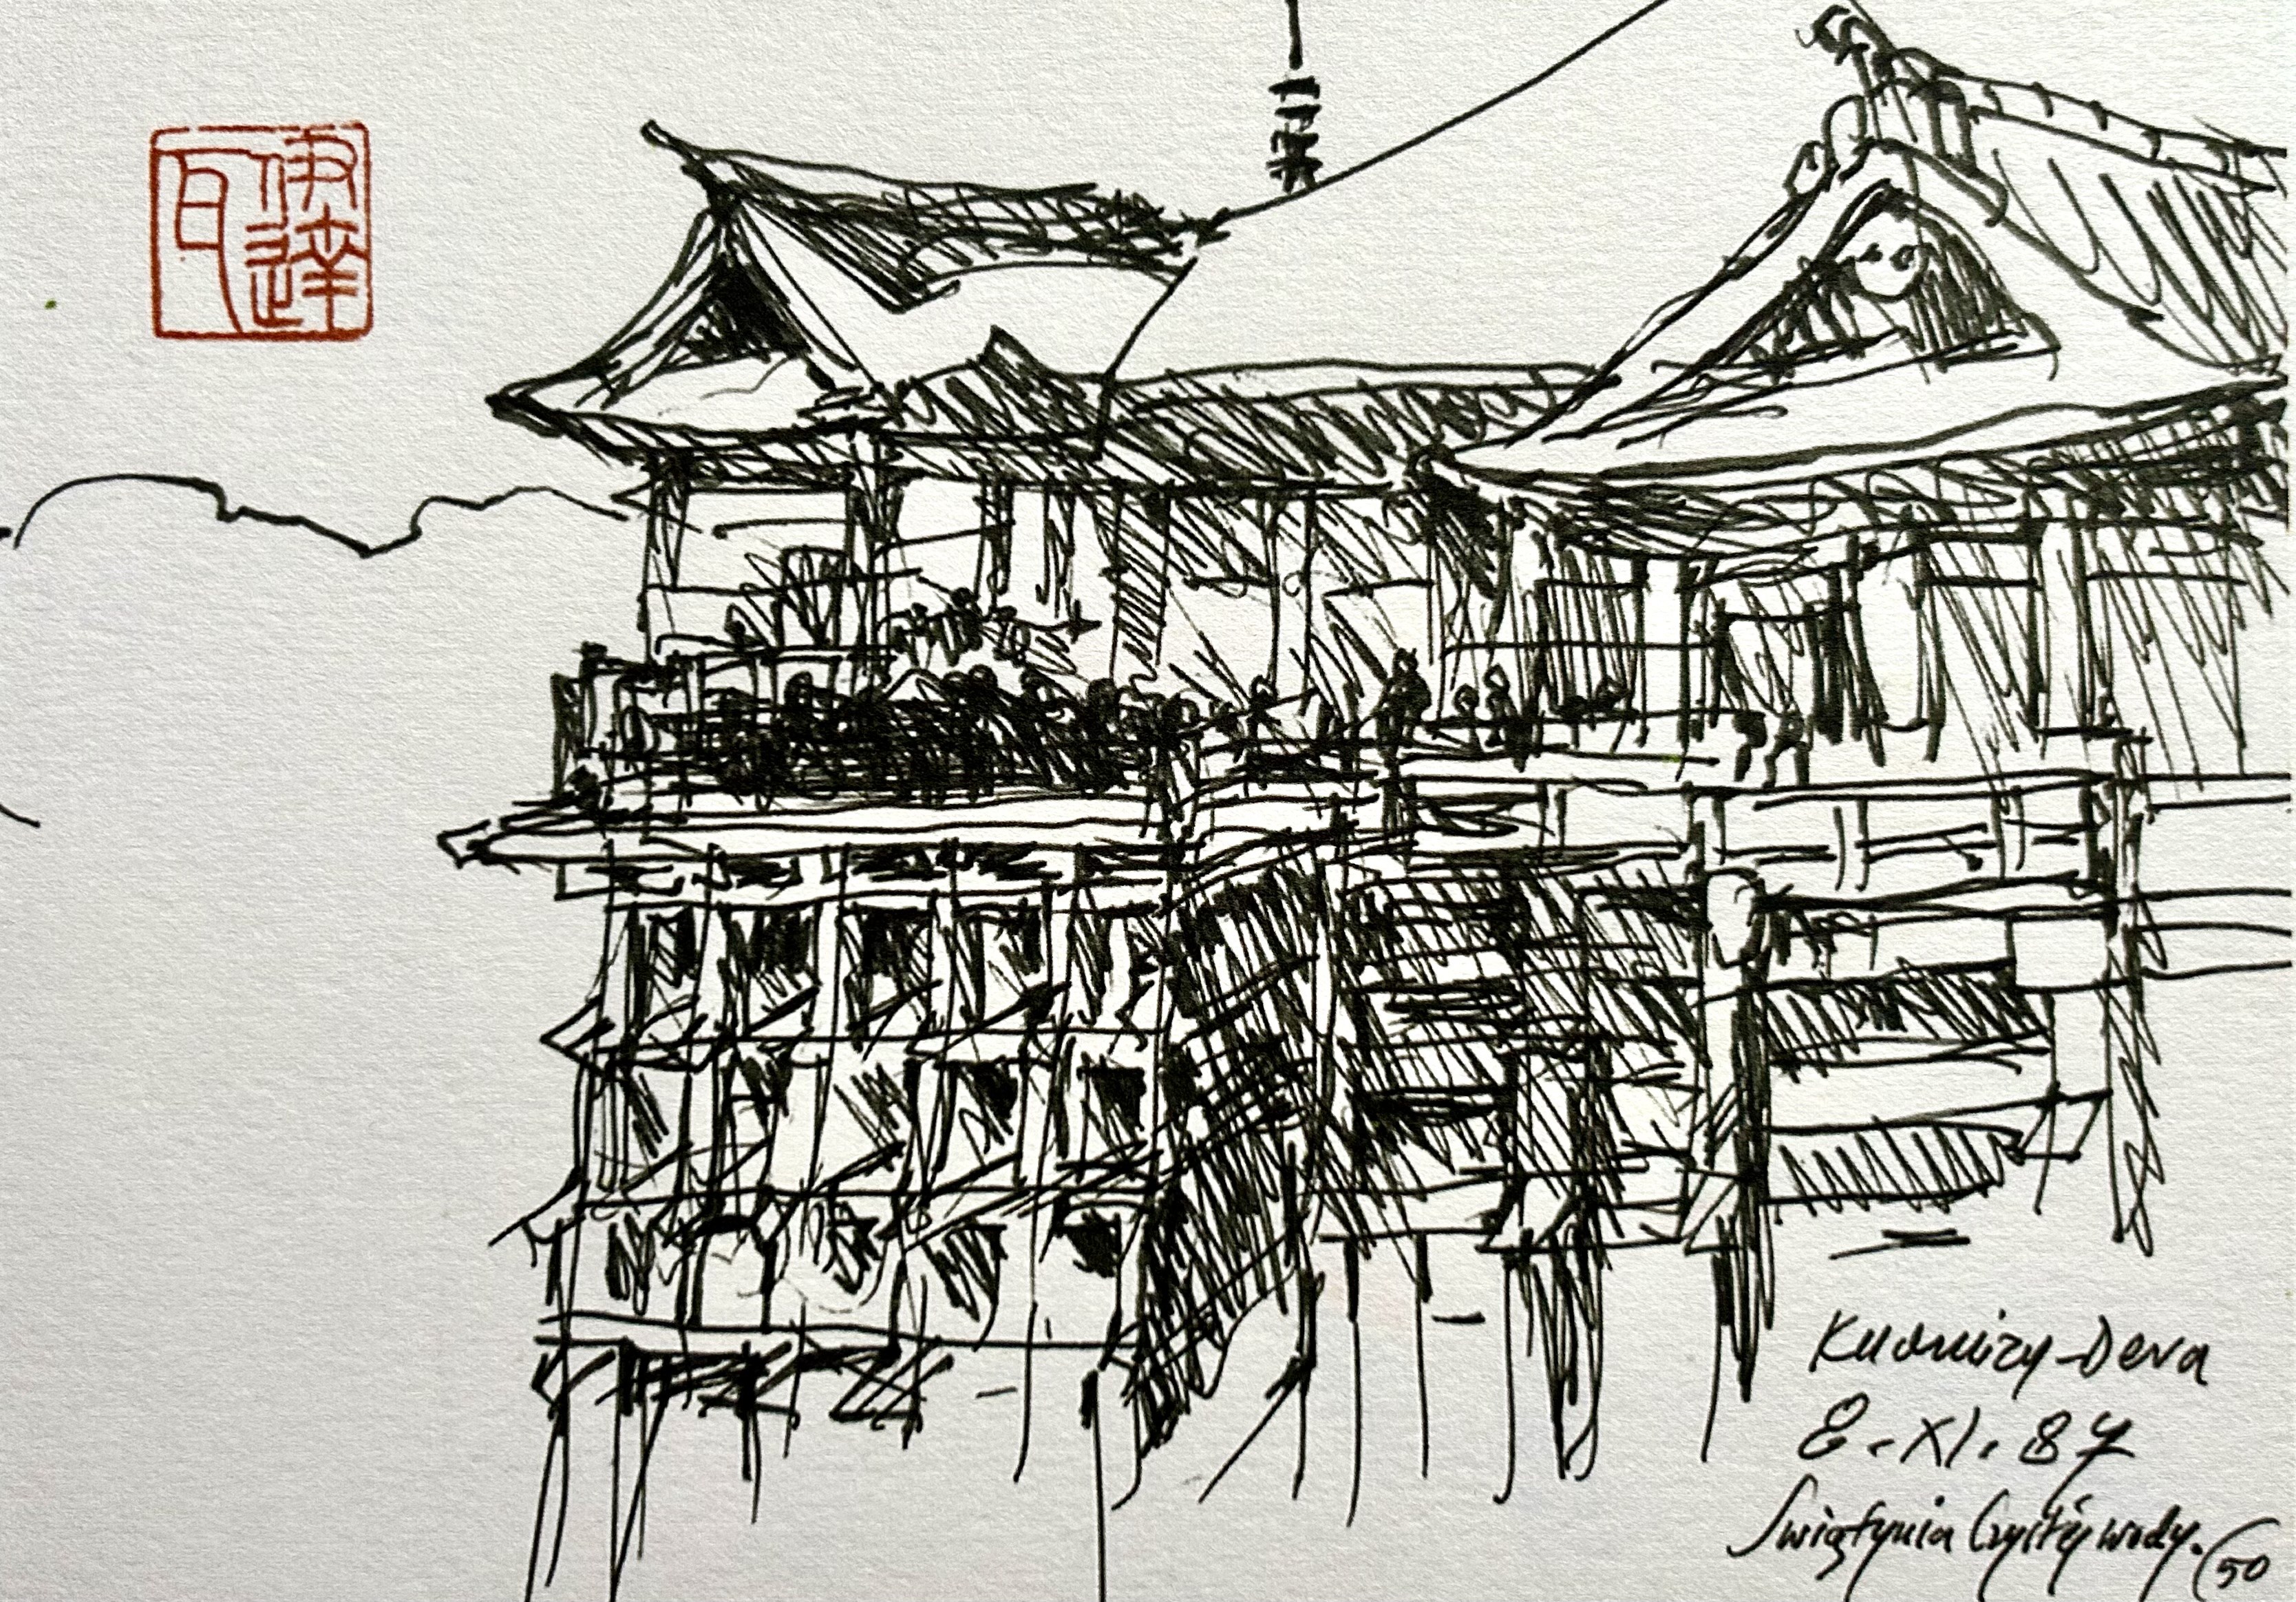 瓦伊達
Kiomizu-Dera
8.XI.87
Świątynia Czystej wody.
50